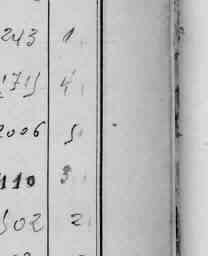 243 1
1715 4
2006 5
110 3
502 2